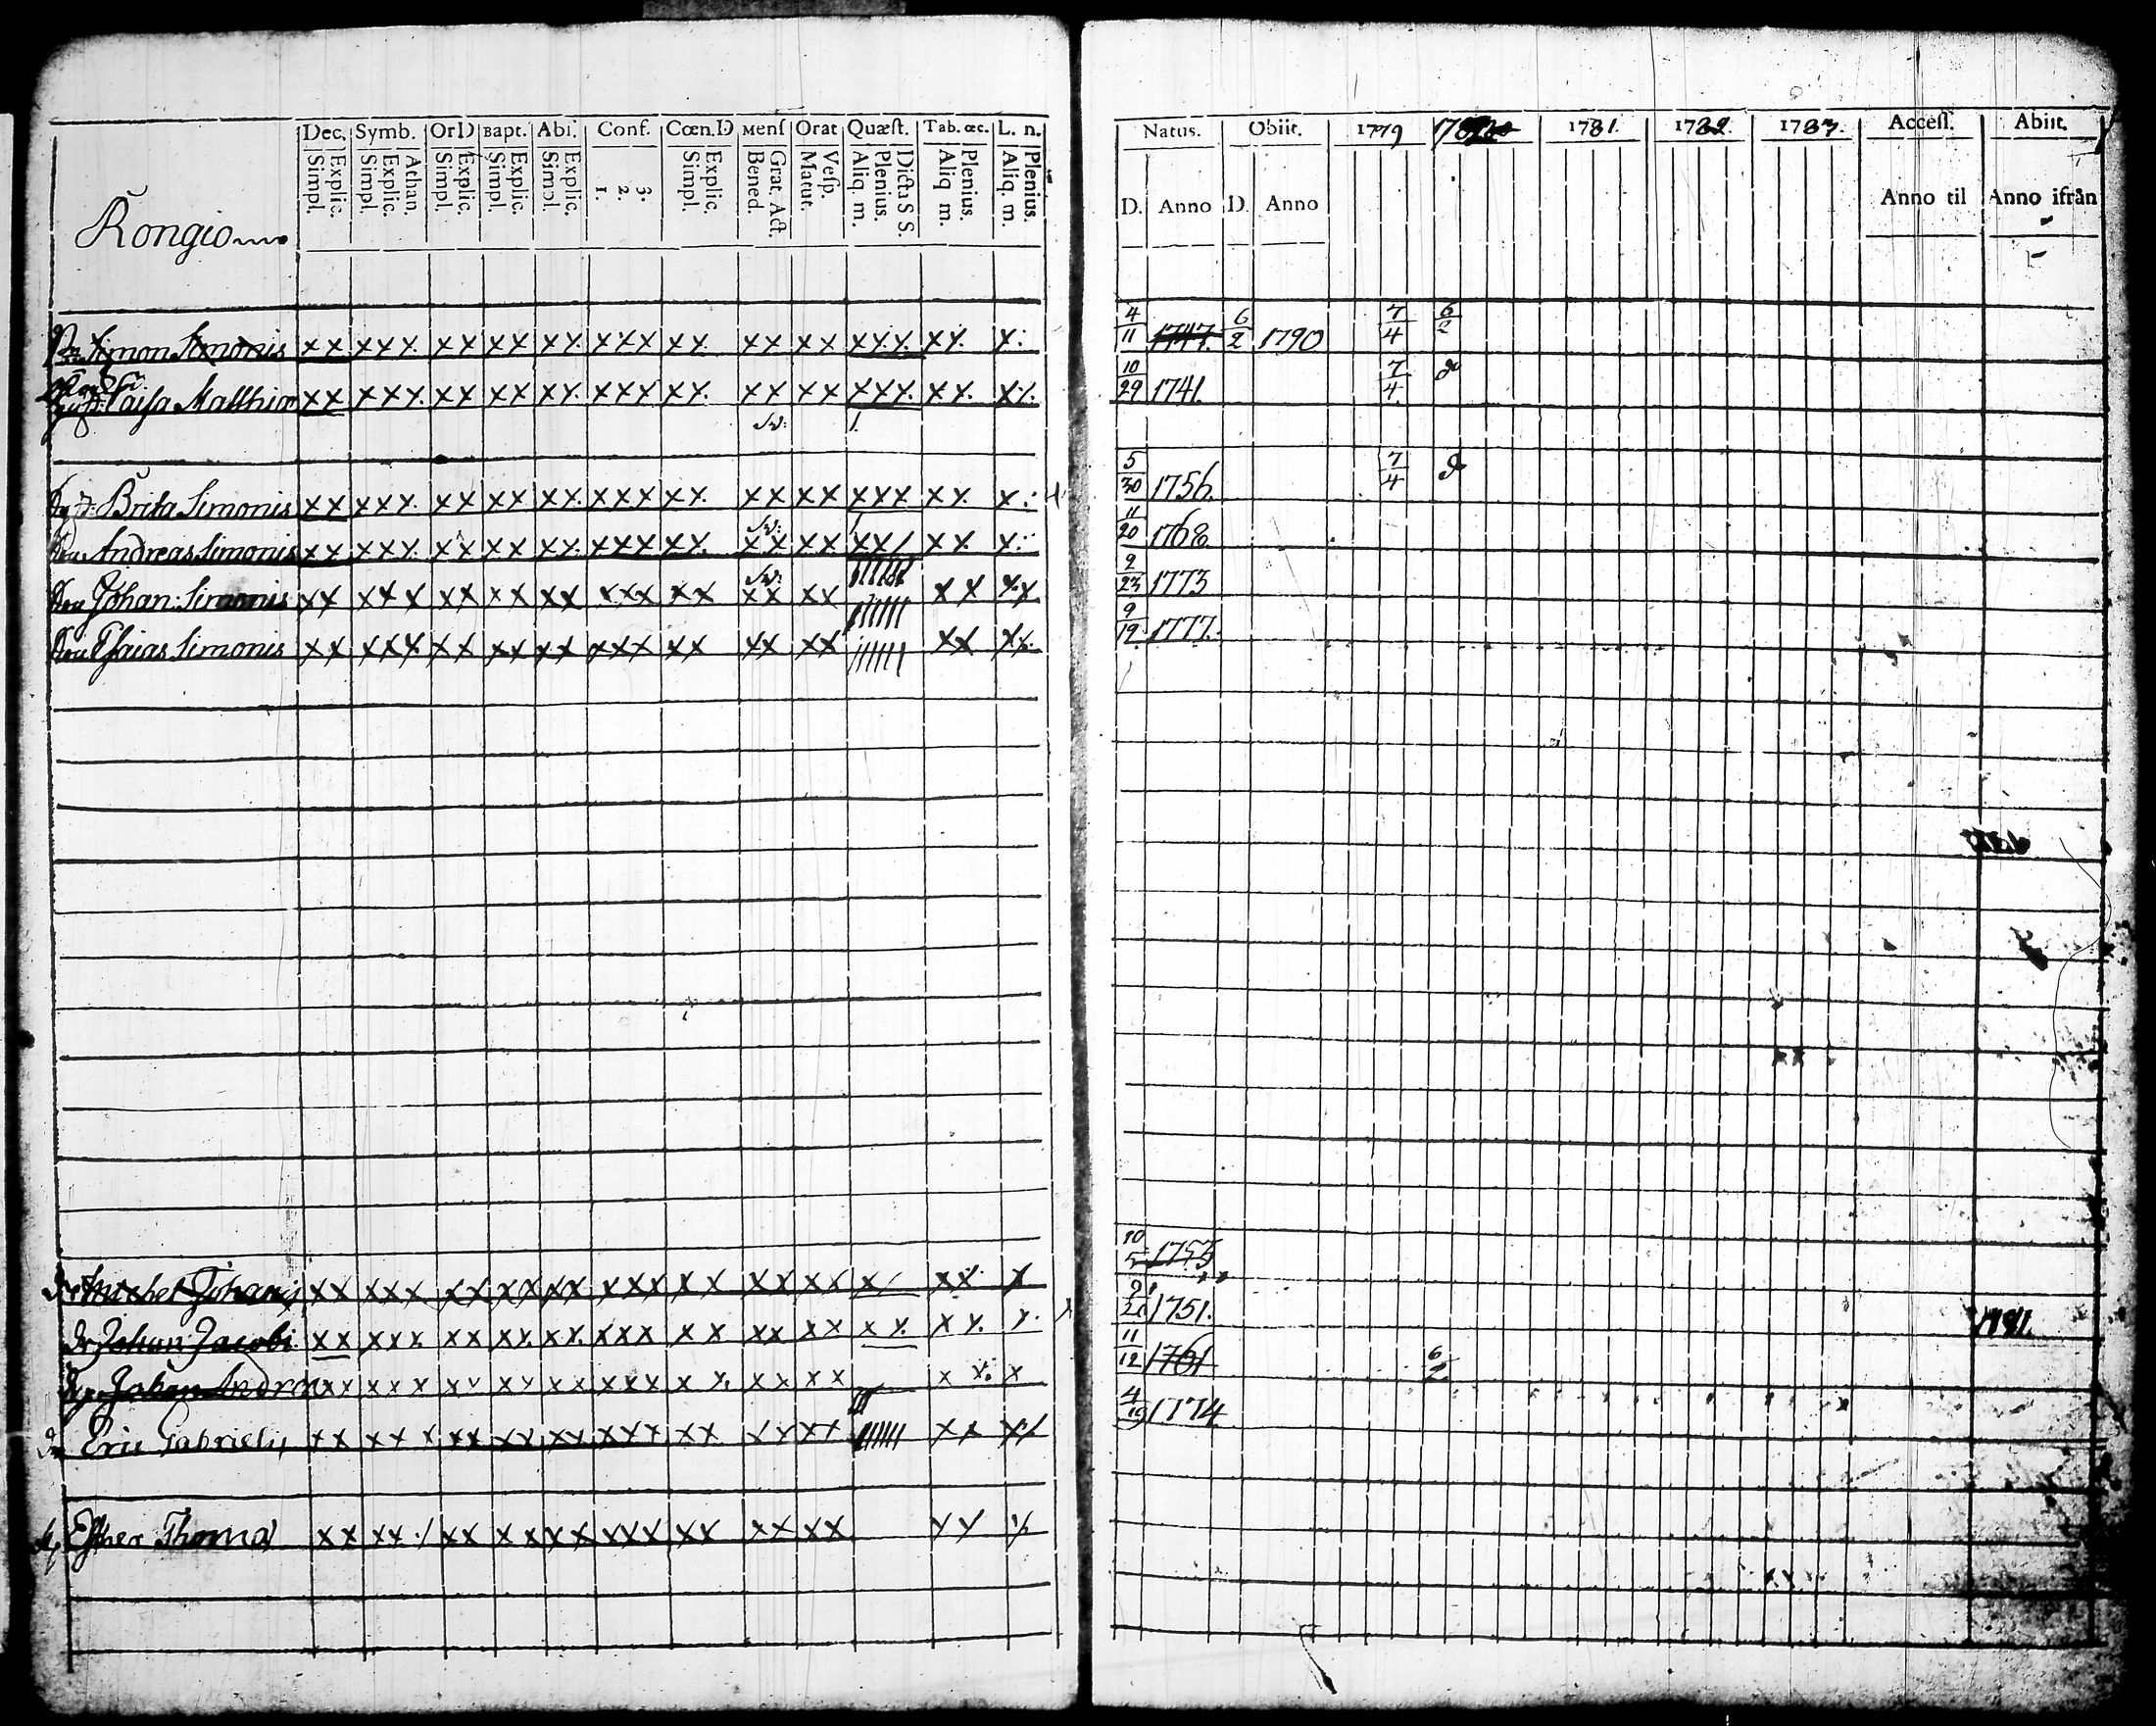 Dec. Symb. OrD Bapt. Abs. Conf. Cœn.D Menſ Orat Quæſt. Tab. œc. L. n. Natus. Obiit. 1779 1780 1781. 1782. 1783. Acceſſ. Abiit.
Simpl. Explic. Simpl. Explic. Athan. Simpl. Explic. Simpl. Explic. Simpl. Explic. 1. 2. 3. Simpl. Explic. Bened. Grat. Act. Matut. Veſp. Aliq. m. Plenius. Dicta S S. Aliq m. Plenius. Aliq. m. Plenius.
D. Anno D. Anno Anno til Anno ifrån
Kongio
Simon Simonis xx xxx xx xx xx xxx xx xx xx xxx xx x 4/11 1747 6/2 1790 7/4 6/2
Caisa Matthiæ xx xxx xx xx xx xxx xx xx xx xxx xx xx 10/29 1741. 7/4
Brita Simonis xx xxx xx xx xx xxx xx xx xx xxx xx x 5/30 1756. 7/4
Andreas Simonis xx xxx xx xx xx xxx xx xx xx xx/ xx x 11/20 1768
Johan Simonis xx xxx xx xx xx xxx xx xx xx xx xx 2/23 1773
Esaias Simonis xx xxx xx xx xx xxx xx xx xx xx xx 9/19 1777.
Michel Johannis xx xxx xx xx xx xxx xx xx xx x/ xx x 10/5 1753
Johan Jacobi xx xxx xx xx xx xxx xx xx xx xx xx x 1751. 1781.
Johan Andreæ xx xxx xx xx xx xxx xx xx xx xx x 11/12 1761 6/2
Eric Gabrielis xx xxx xx xx xx xxx xx xx xx xx x/ 4/19 1774
Esther Thomæ xx xx/ xx xx xx xxx xx xx xx xx x